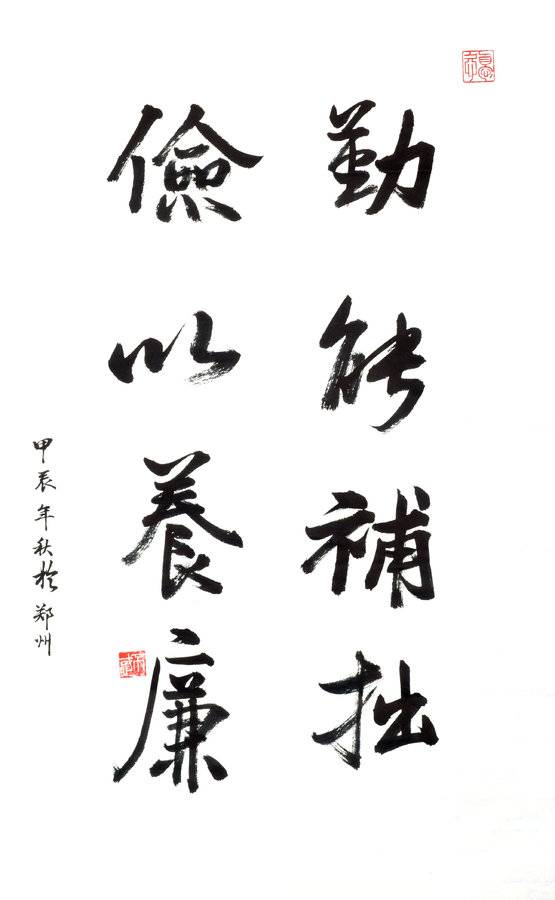 勤能補拙
儉以養廉
甲辰年秋於郑州